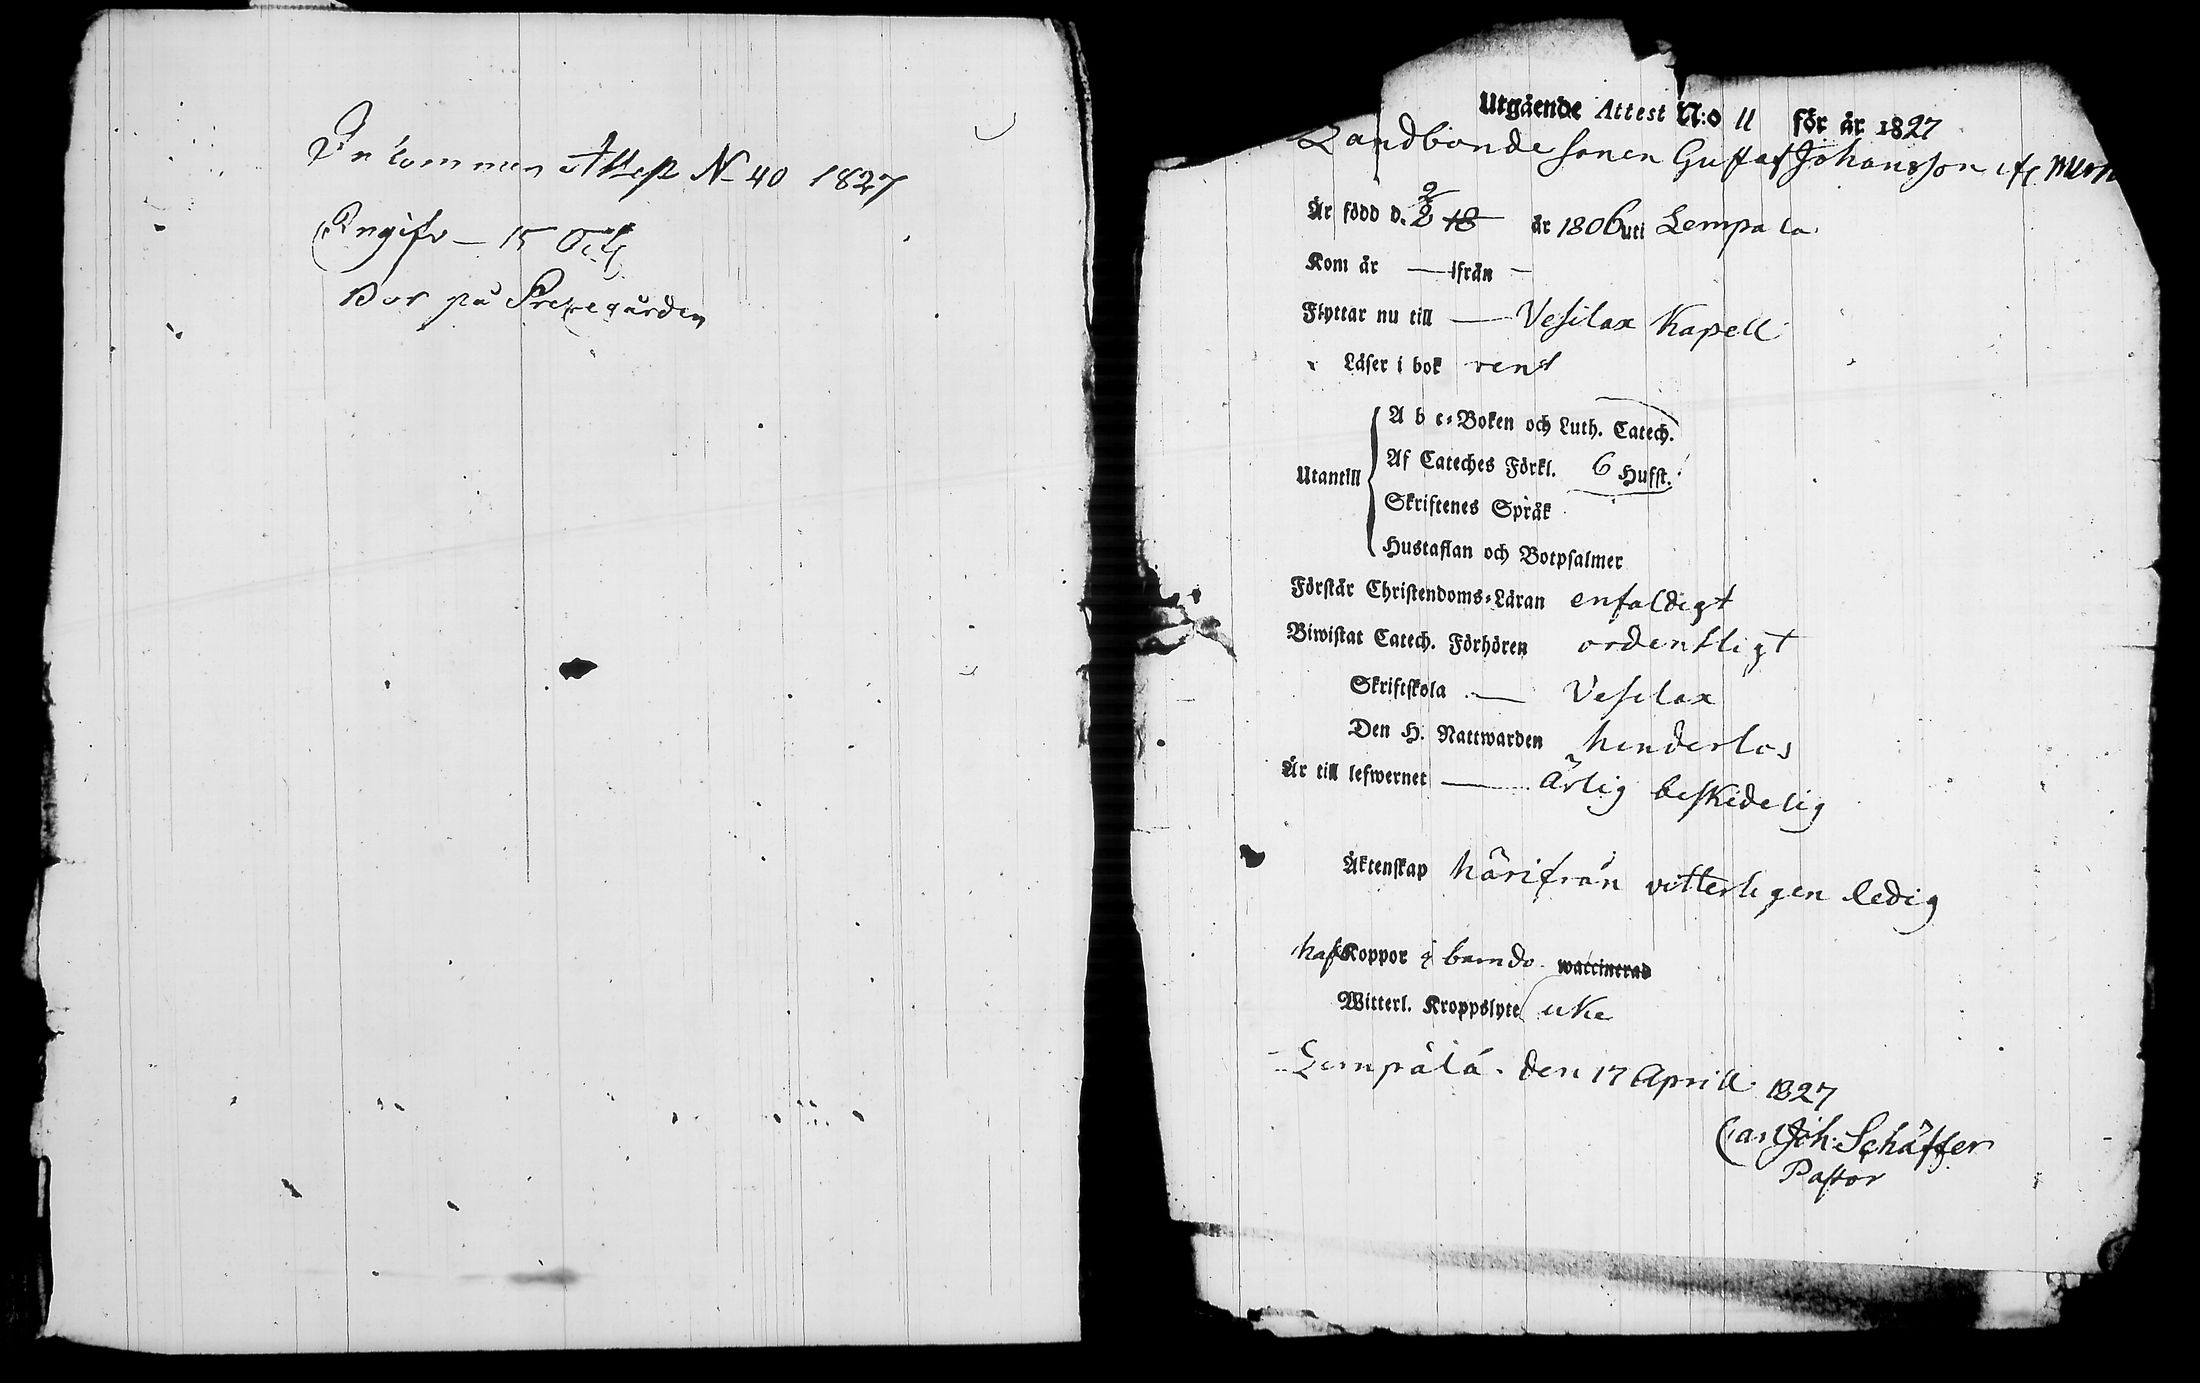 Inkommen Attest N 40 1827
Angifv – 15 Oct
Bor på Prestegården
Utgående Attest N:o 11 för år 1827
Landbonde sonen Gustaf Johansson ifr
Är född d. 2 18 år 1806 uti Lempala
Kom år — ifrån —
Flyttar nu till — Vesilax Kapell
Läser i bok rent
A b c-Boken och Luth. Catech.
Utantill
Af Cateches Förkl. 6 Hufst.
Skriftenes Språk
Hustaflan och Botpsalmer
Förstår Christendoms-Läran enfaldigt
Biwistat Catech. Förhören ordentligt
Skriftskola — Vesilax
Den H. Nattwarden henderlös
Är till lefwernet — Ärlig beskedelig
Äktenskap härifrån vitterligen ledig
haft Koppor i barndo. waccinerad
Witterl. Kroppslyte
Lempälä den 17 Aprill 1827
Carl Joh: Schäffer
Pastor